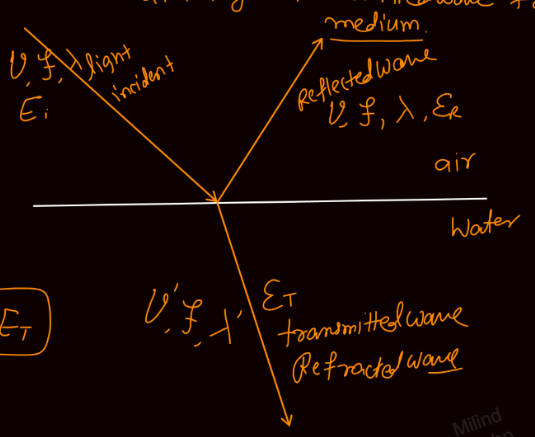 medium
v, f, λ light
incident
Ei
Reflected wave
v, f, λ, ER
air
Water
ET
v', f, λ'
ET
transmitted wave
Refracted wave
Milind